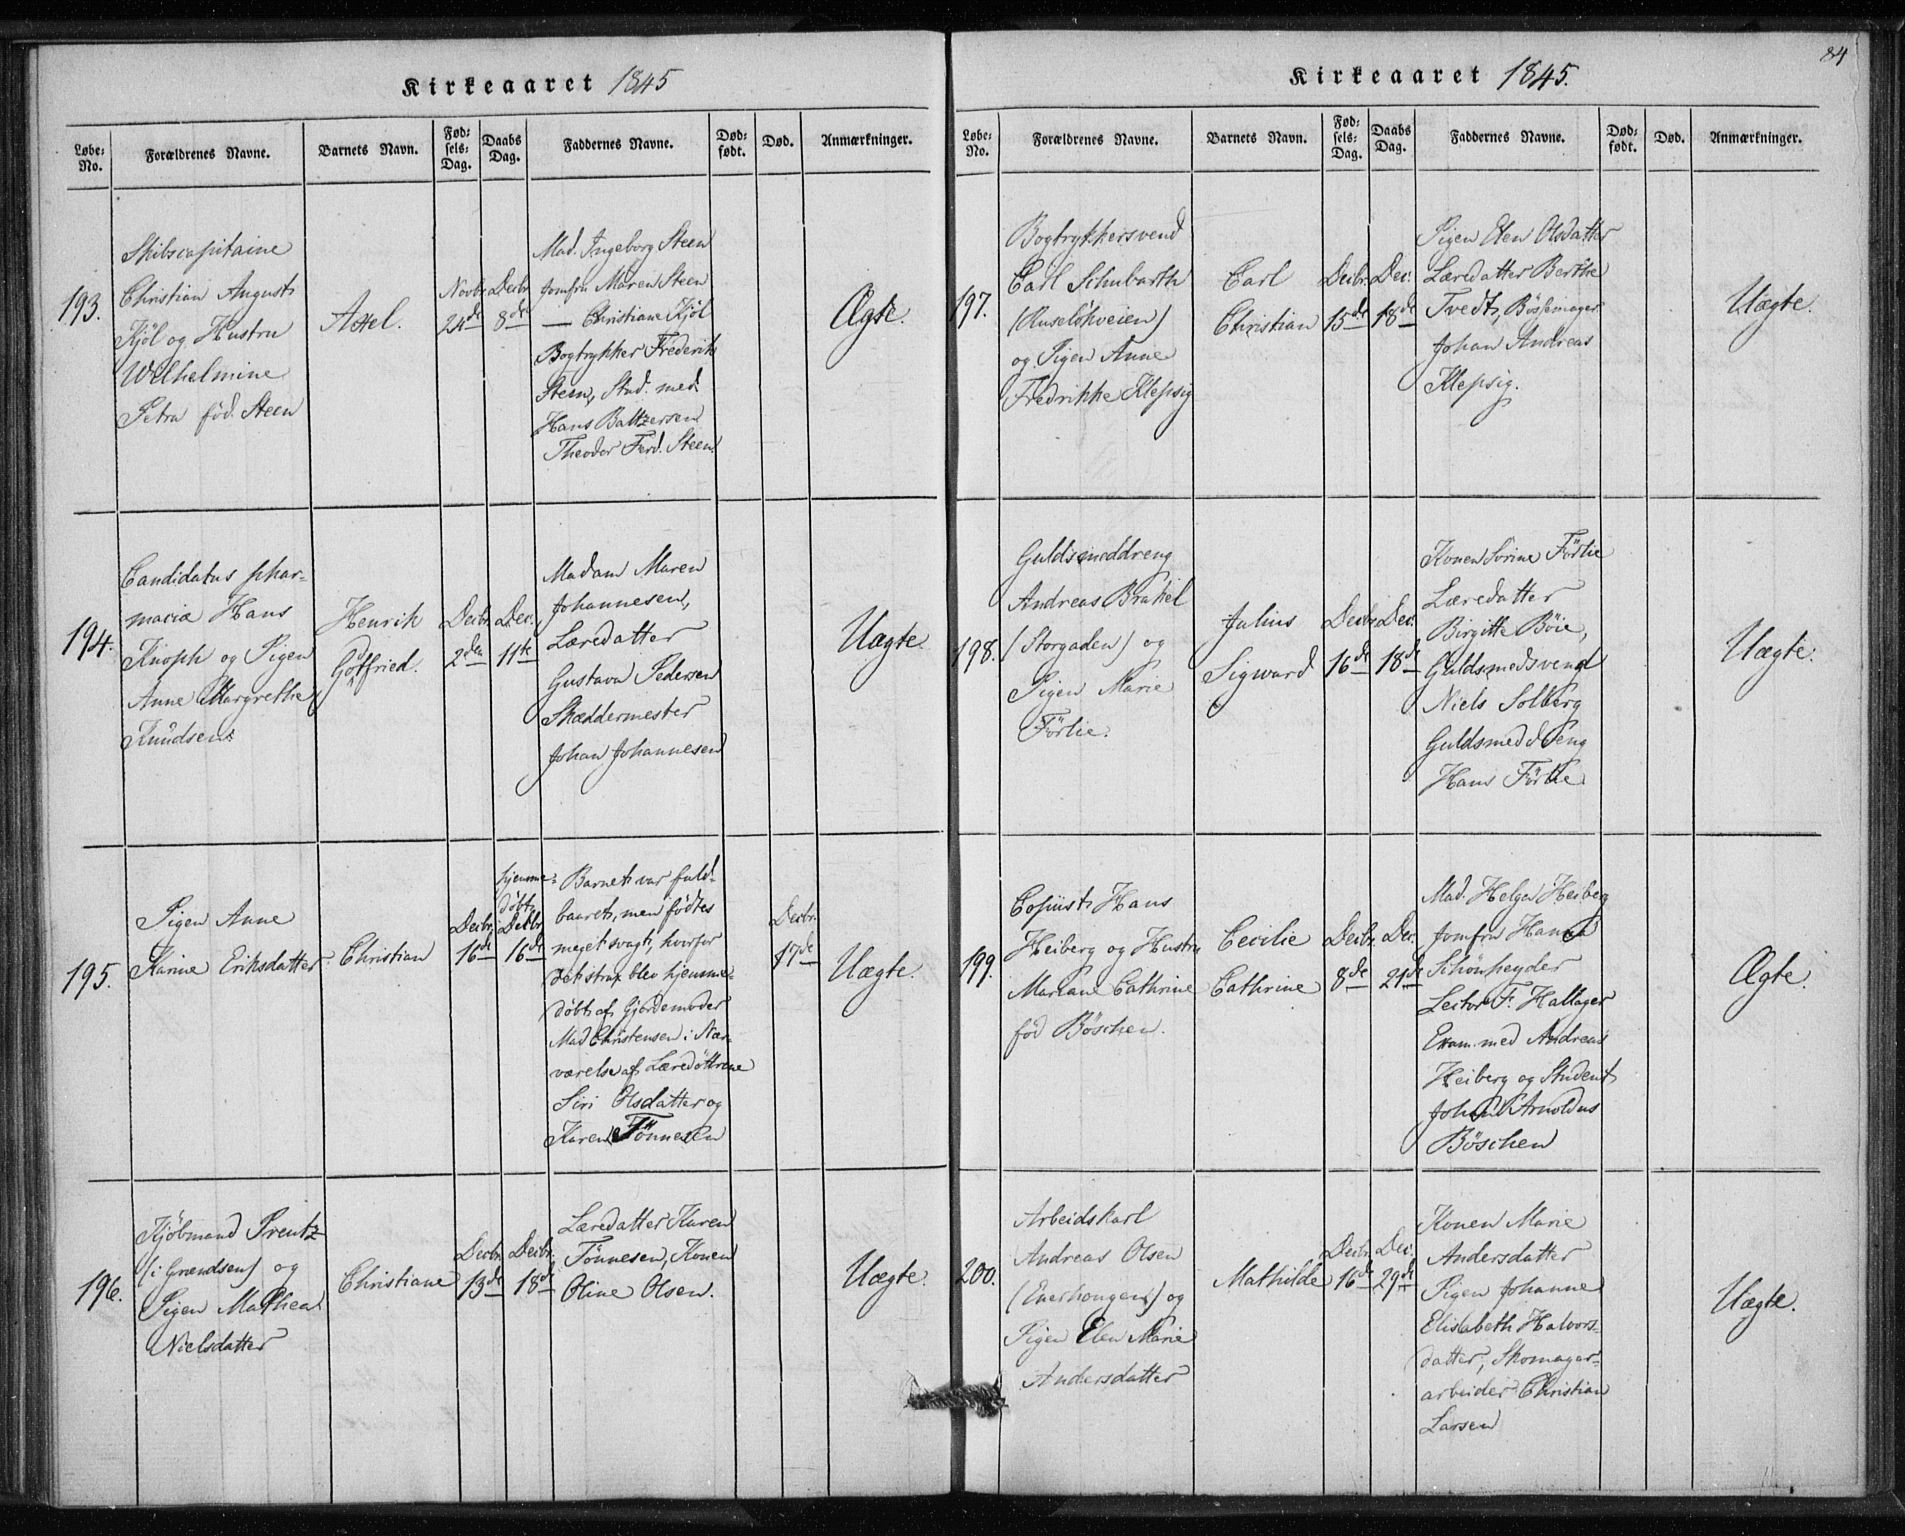 Kirkeaaret 1845
Løbe-No. Forældrenes Navne. Barnets Navn. Fød-sels-Dag. Daabs Dag. Faddernes Navne. Død-født. Død. Anmærkninger.
193.
Skibscapitaine
Christian August
Kjöl og Hustru
Wilhelmine
Petra föd. Steen
Axel.
Novbr.
24de
Decbr.
8de
Mad. Ingeborg Steen
Jomfru Maren Steen
— Christiane Kjöl
Bogtrykker Frederik
Steen, Stud. med.
Hans Baltzersen
Theodor Ferd. Steen.
Ægte.
194.
Candidatus phar-
maciæ Hans
Knoph og Pigen
Anne Margrethe
Knudsen.
Henrik
Gotfried.
Decbr.
2den
Dec.
11te
Madam Maren
Johannesen,
Læredatter
Gustava Pedersen
Skræddermester
Johan Johannesen
Uægte.
195.
Pigen Anne
Karine Eriksdatter
Christian
Decbr.
16de
hjemme-
döbt
Decbr.
16de
Barnet var fuld-
baaret, men födtes
meget svagt, hvorfor
det strax blev hjemme-
döbt af Gjordemoder
Mad Christensen i Nær-
værelse af Læredöttrene
Siri Olsdatter og
Karen Tönnesen
Decbr.
17de
Uægte.
196.
Kjöbmand Prentz
(i Grændsen) og
Pigen Mathea
Nielsdatter
Christiane
Decbr.
13de
Decbr.
18de
Læredatter Karen
Tönnesen, Konen
Oline Olsen.
Uægte.
84
Kirkeaaret 1845.
Løbe-No. Forældrenes Navne. Barnets Navn. Fød-sels-Dag. Daabs Dag. Faddernes Navne. Død-født. Død. Anmærkninger.
197.
Bogtrykkersvend
Carl Schubarth
(Ruselökveien)
og Pigen Anne
Fredrikke Klepsig
Carl
Christian
Decbr.
15de
Dec.
18de
Pigen Elen Olsdatter
Læredatter Berthe
Tvedt, Bössemager
Johan Andreas
Klepsig.
Uægte.
198.
Guldsmeddreng
Andreas Brakel
(Storgaden) og
Pigen Marie
Förlie.
Julius
Sigward
Decbr.
16de
Dec.
18de
Konen Sorine Förlie
Læredatter
Birgitte Böie,
Guldsmedsvend
Niels Solberg
Guldsmeddreng
Hans Förlie
Uægte.
199.
Copiist Hans
Heiberg og Hustru
Mariane Cathrine
föd Böschen.
Cecilie
Cathrine
Decbr.
8de
Dec.
21de
Mad. Helga Heiberg
Jomfru Hanna
Schönheyder
Lector F. Hallager
Exam. med Andreas
Heiberg og Student
Johan Arnoldus
Böschen
Ægte.
200.
Arbeidskarl
Andreas Olsen
(Enerhougen) og
Pigen Elen Marie
Andersdatter
Mathilde
Decbr.
16de
Dec.
29de
Konen Marie
Andersdatter
Pigen Johanne
Elisabeth Halvors-
datter, Skomager-
arbeider Christian
Larsen
Uægte.